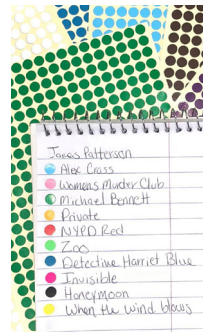 James Patterson
Alex Cross
Womens Murder Club
Michael Bennett
Private
NYPD Red
Zoo
Detective Harriet Blue
Invisible
Honeymoon
When the wind blows